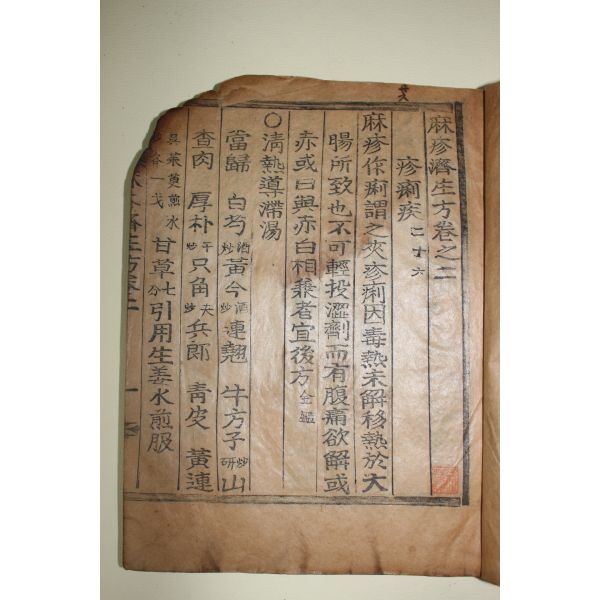 麻疹濟生方卷之二
疹痢疾 二十六
麻疹作痢謂之夾疹痢因毒熱未解移熱於大
腸所致也不可輕投澀劑而有腹痛欲解或
赤或白與赤白相兼者宜後方 金鑑
○淸熱導滯湯
當歸 白芍 黃今 酒炒 連翹 牛方子 炒研 山
查肉 厚朴 干炒 只角 夫炒 兵郎 靑皮 黃連
吳茱萸煎水 各一戔 甘草 七分 引用生姜水煎服